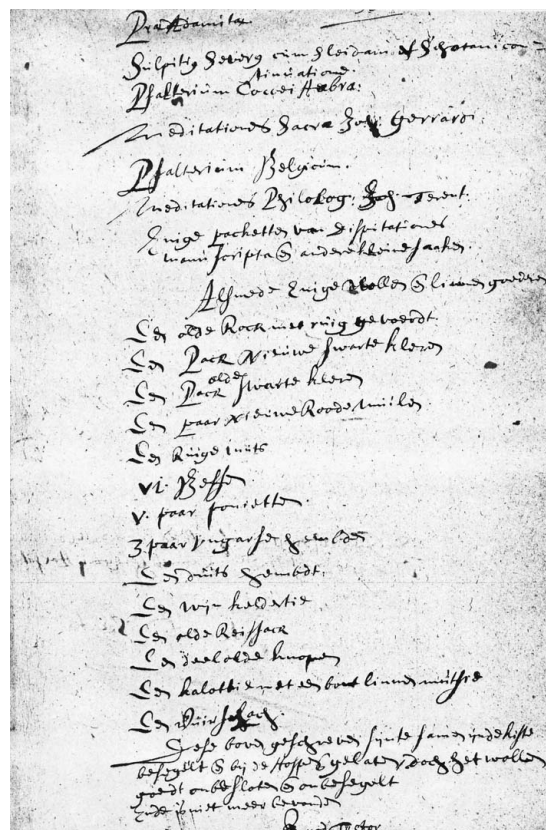 Praeadamitae
Sulpitiu Severu cum Sleidani et Schotani con-
tinuatione.
Psalterium Coccei Hebra:
Meditationes Sacrae Joh: Gerrardi:
Psalterium Belgicum.
Meditationes Philolog: Joh: Terent.
Enige pocketten van Dispitationes
manuscripta & andere kleine saaken.
Alsmede Enige wollen & linnen goederen
Een olde Rock met ruig gevoerdt
Een Pack Nieuwe swarte kleren
Een Pack olde swarte kleren
Een paar Nieuwe Roode muilen
Een Ruige muts
VI. Beffe
V. paar ponietten
3 paar Hembden
Een duits hembdt.
Een wijn keldertie
Een olde Reissack
Een deel olde knopen
Een kalottie met een bont linnen mutsie
Een
Dese boven geschreven sijnte samen in de kiste
besegelt & bij de Hospes gelaten, doch het wollen
goedt onbesloten & onbesegelt
Ende is niet meer bevonden